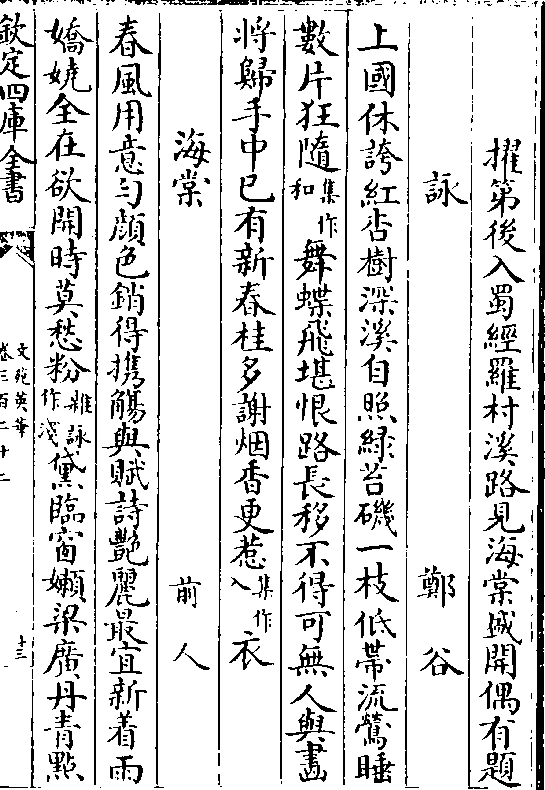 擢第後入蜀經羅村溪路見海棠盛開偶有題
詠　鄭谷
上國休誇紅杏樹深溪自照綠苔磯一枝低帶流鶯睡
數片狂隨集作和舞蝶飛堪恨路長移不得可無人與畫
將歸手中已有新春桂多謝烟香更惹集作入衣
海棠　前人
春風用意勻顔色銷得携觴與賦詩艷麗最宜新着雨
嬌嬈全在欲開時莫愁粉雜詠作淺黛臨窗嬾梁廣丹青點
欽定四庫全書
文苑英華
卷三百二十二
十三